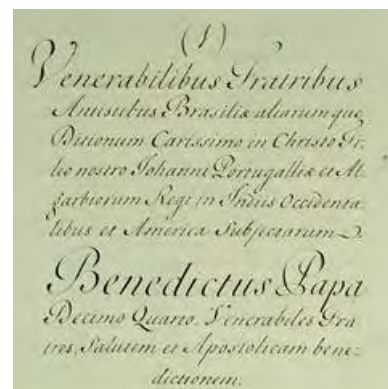 (1)
Venerabilibus Fratribus
Antistitibus Brasiliæ aliarumque
Ditionum Carissimo in Christo Fi-
lio nostro Iohanni Portugalliæ et Al-
garbiorum Regi in Indiis Occidenta-
libus et America Subjectarum
Benedictus Papa
Decimo Quarto. Venerabiles Fra
tres, Salutem et Apostolicam bene=
dictionem.